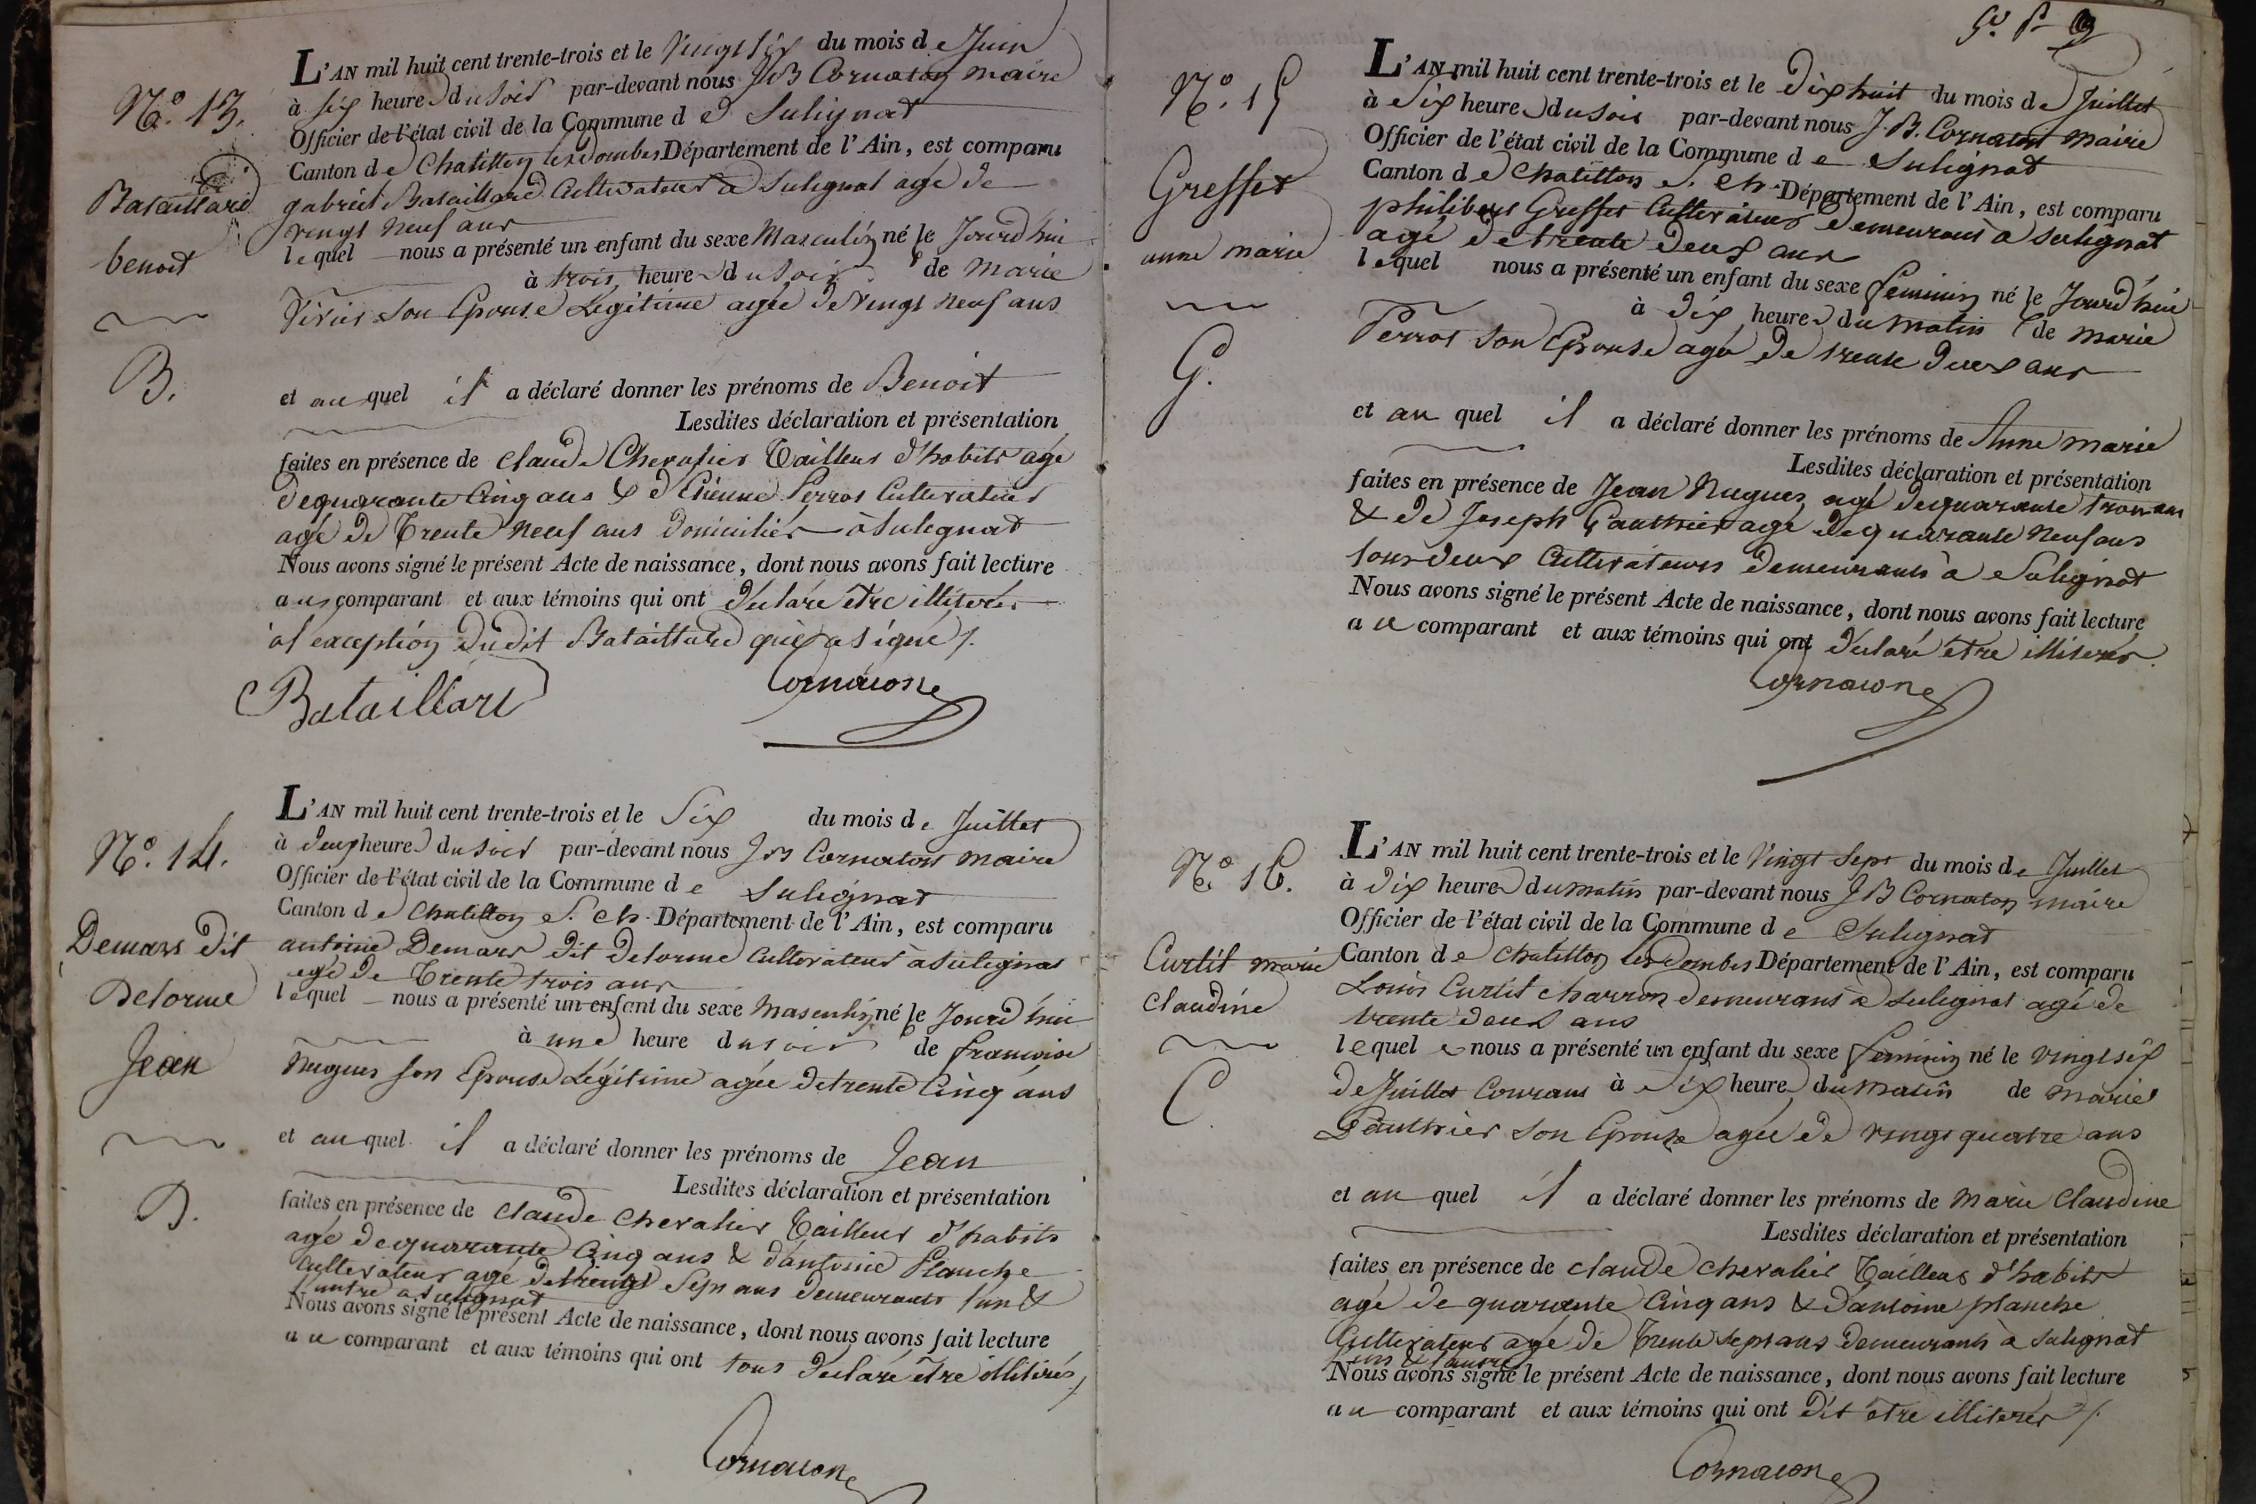 N.° 13.
Bataillard
benoit
B.
L'AN mil huit cent trente-trois et le Vingt six du mois de Juin
à six heures du soir par-devant nous J B Cornaton maire
Officier de l'état civil de la Commune de Sulignat
Canton de Chatillon les dombes Département de l'Ain, est comparu
gabriel Bataillard Cultivateur a Sulignat agé de
vingt neuf ans
lequel nous a présenté un enfant du sexe Masculin né le Jourd'hui
à trois heures du soir de Marie
son Epouse Légitime agée de vingt neuf ans
et auquel il a déclaré donner les prénoms de Benoit
Lesdites déclaration et présentation
faites en présence de Claude Chevalier Tailleur d'habits agé
de quarante Cinq ans & d'Etienne Perrot Cultivateur
agé de Trente neuf ans domiciliés à Sulignat
Nous avons signé le présent Acte de naissance, dont nous avons fait lecture
aux comparant et aux témoins qui ont déclaré être illiterés
à l'exception dudit Bataillard qui a signé /.
Bataillard Cornaton
N.° 14.
Demars dit
Delorme
Jean
D.
L'AN mil huit cent trente-trois et le Six du mois de Juillet
à deux heures du soir par-devant nous J B Cornaton maire
Officier de l'état civil de la Commune de Sulignat
Canton de Chatillon S. Ch. Département de l'Ain, est comparu
antoine Demars dit delorme Cultivateur à Sulignat
agé de Trente trois ans
lequel nous a présenté un enfant du sexe Masculin né le Jourd'hui
à une heure du soir de francoise
Nugues son Epouse Légitime agée de trente Cinq ans
et auquel il a déclaré donner les prénoms de Jean
Lesdites déclaration et présentation
faites en présence de Claude Chevalier Tailleur d'habits
agé de quarante Cinq ans & d'antoine Planche
Cultivateur agé de trente Sept ans demeurants l'un &
l'autre a Sulignat
Nous avons signé le présent Acte de naissance, dont nous avons fait lecture
au comparant et aux témoins qui ont tous déclaré être illitérés /.
Cornaton
N.° 15
Greffet
anne marie
G.
L'AN mil huit cent trente-trois et le dix huit du mois de Juillet
à Six heures du soir par-devant nous J. B. Cornaton maire
Officier de l'état civil de la Commune de Sulignat
Canton de Chatillon S. Ch. Département de l'Ain, est comparu
philibert Greffet Cultivateur demeurant à Sulignat
agé de trente deux ans
lequel nous a présenté un enfant du sexe feminin né le Jourd'hui
à dix heures du matin de marie
Perrot son Epouse agée de trente deux ans
et auquel il a déclaré donner les prénoms de Anne marie
Lesdites déclaration et présentation
faites en présence de Jean Nugues agé de quarante trois ans
& de Joseph Gauthier agé de quarante Neuf ans
tous deux Cultivateurs demeurants à Sulignat
Nous avons signé le présent Acte de naissance, dont nous avons fait lecture
au comparant et aux témoins qui ont déclaré être illiterés.
Cornaton
N.° 16.
Curtit marie
claudine
C
L'AN mil huit cent trente-trois et le Vingt Sept du mois de Juillet
à dix heures du matin par-devant nous J B Cornaton maire
Officier de l'état civil de la Commune de Sulignat
Canton de Chatillon les Dombes Département de l'Ain, est comparu
Louis Curtit charron demeurant à Sulignat agé de
trente deux ans
lequel nous a présenté un enfant du sexe feminin né le vingt six
de Juillet Courant à dix heures du matin de marie
Gauthier son Epouse agée de vingt quatre ans
et auquel il a déclaré donner les prénoms de Marie Claudine
Lesdites déclaration et présentation
faites en présence de claude chevalier Tailleur d'habits
agé de quarante Cinq ans & d'antoine planche
Cultivateur agé de Trente sept ans demeurants à Sulignat
l'un & l'autre
Nous avons signé le présent Acte de naissance, dont nous avons fait lecture
au comparant et aux témoins qui ont dit être illiterés /.
Cornaton